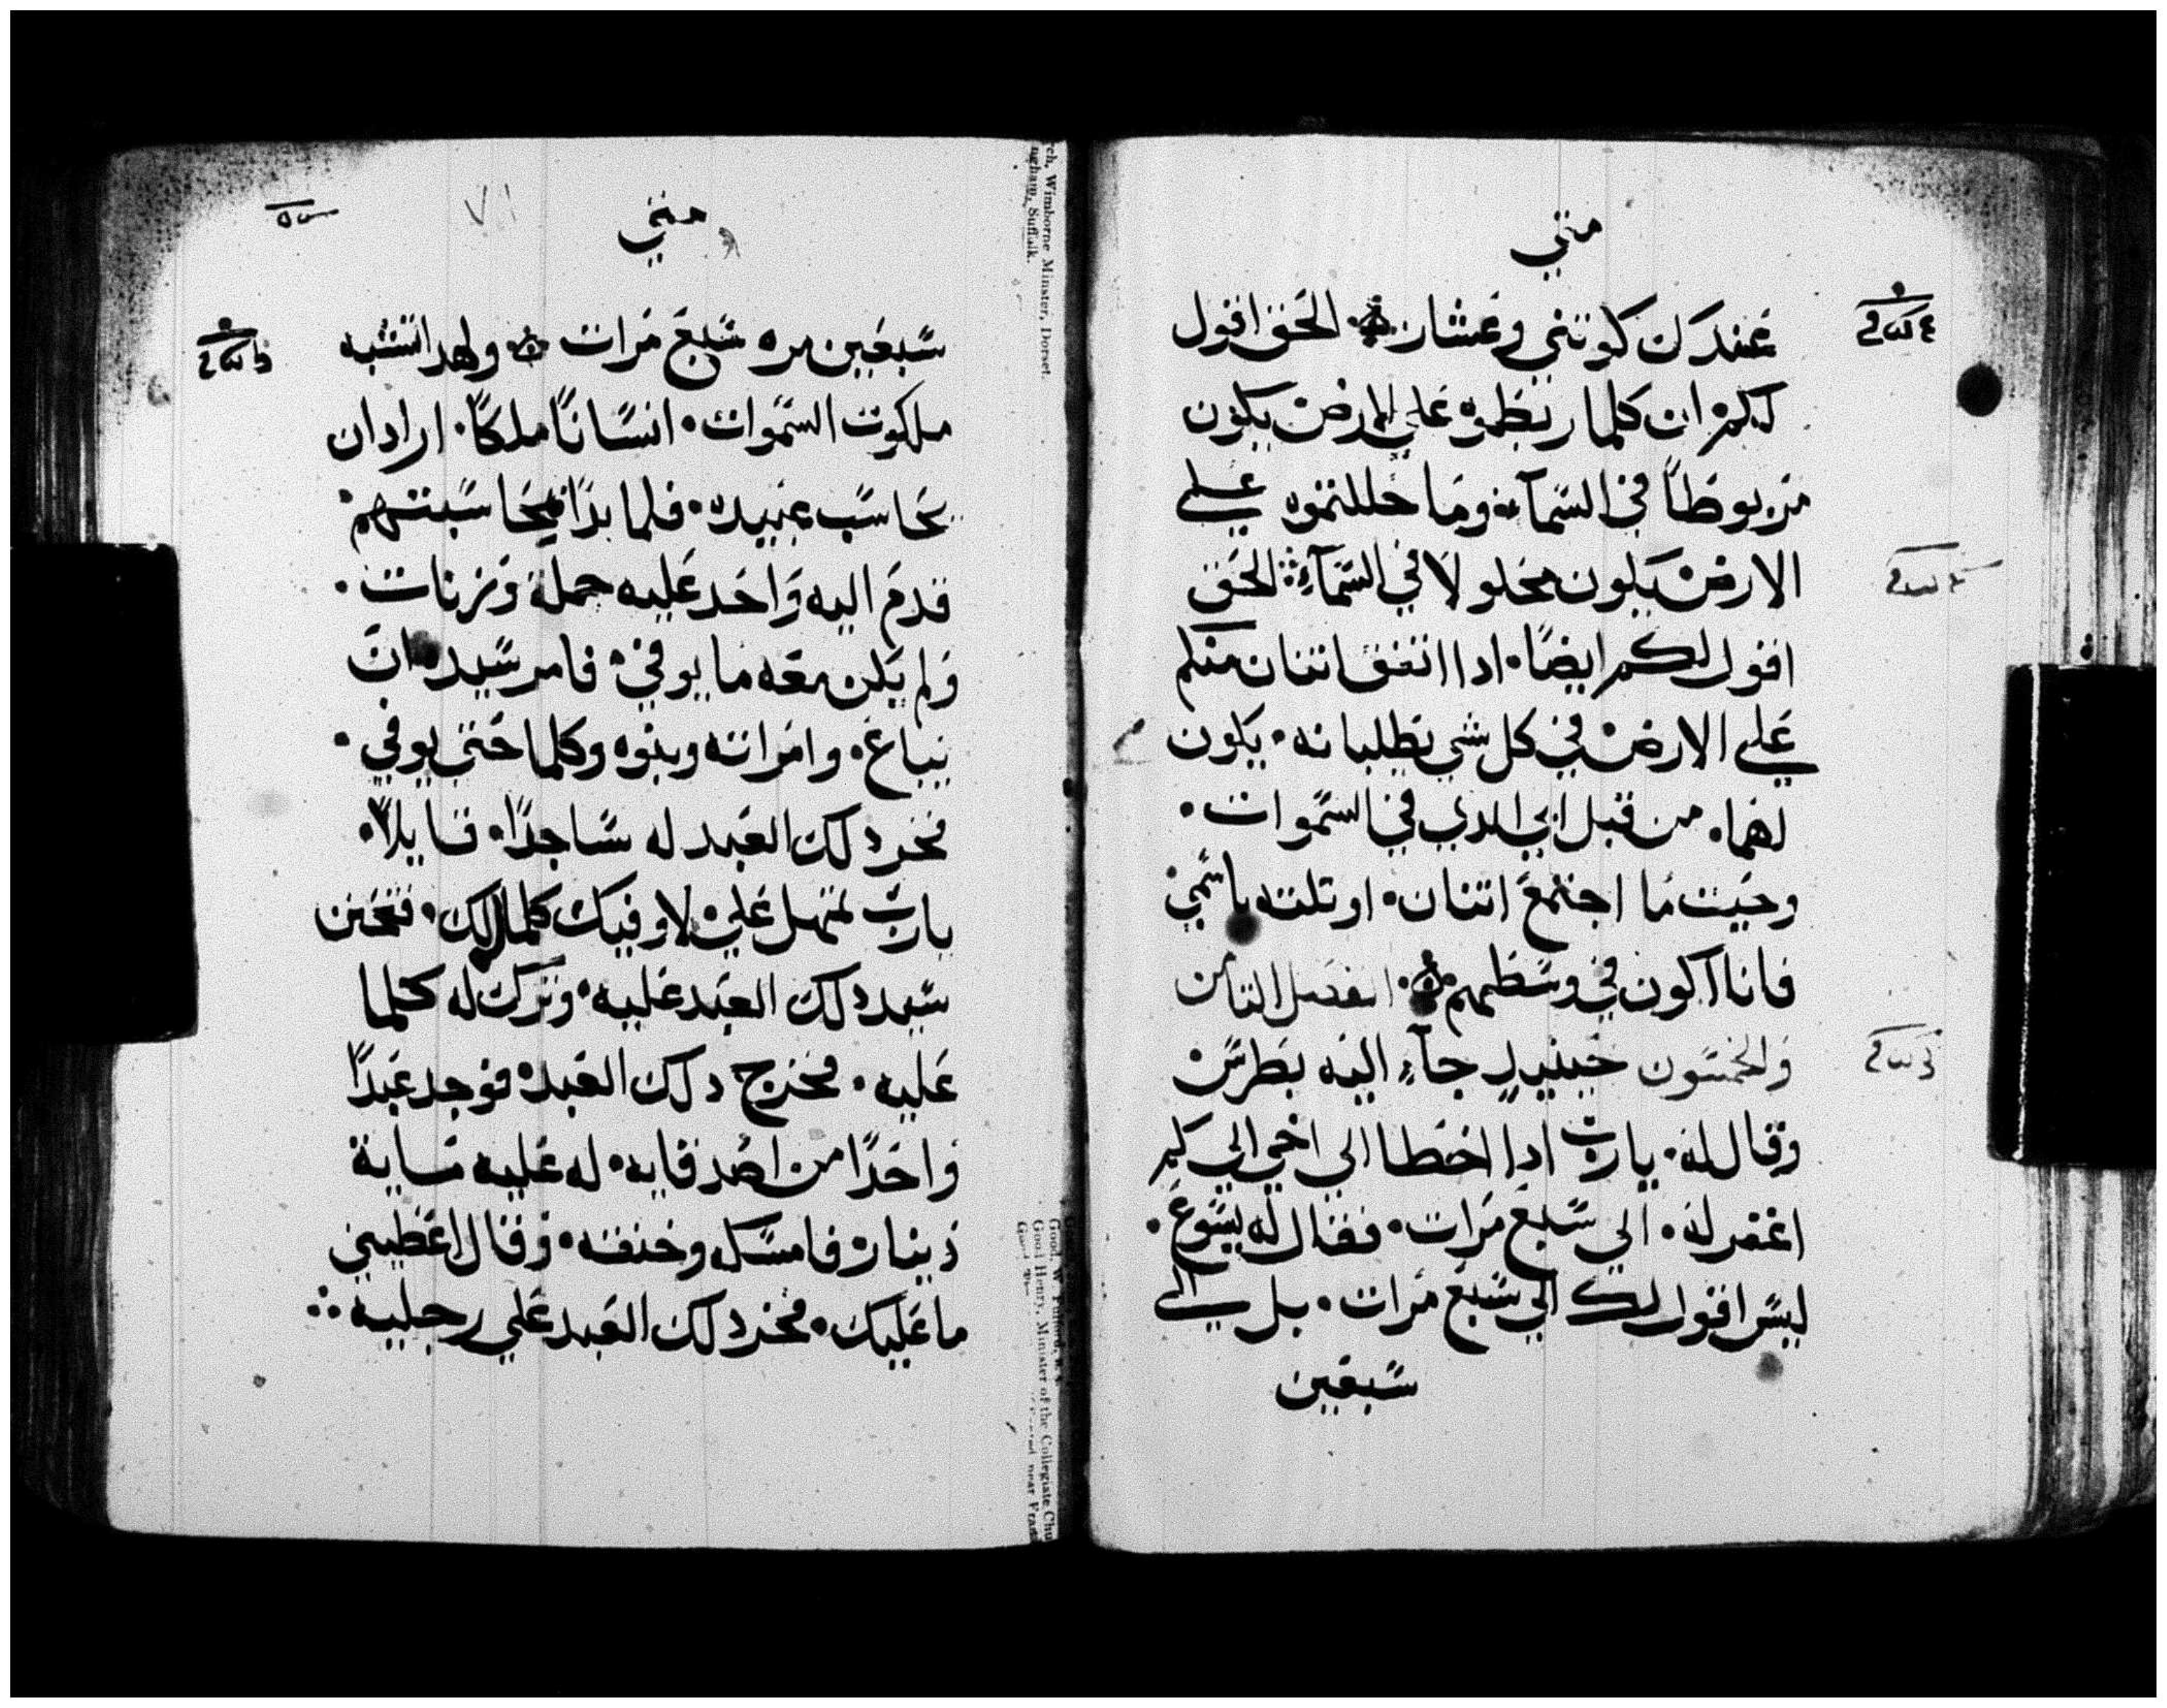 متي
عندك كوتني وعشار الحق اقول
لكم ان كلما ربطموه علي الارض يكون
مربوطاً في السمآء وما حللتموه علي
الارض يكون محلولا في السمآء الحق
اقول لكم ايضاً اداا اتفق اتنان منكم
علي الارض في كل شي يطلبانه يكون
لهما من قبل ابي الدي في السموات
وحيت ما اجتمع اتنان او تلته باسمي
فانا اكون في وسطهم الفصل التامن
والخمسون حينيدٍ جآء اليه بطرس
وقال له يارب ادا اخطا الي اخي الي كم
اغفر له الي سبع مرات فقال له يسوع
ليس اقول لك الي سبع مرات بل الي
سبعين
متي
سبعين مره سبع مرات ولهدا تشبه
ملكوت السموات انساناً ملكاً اراد ان
يحاسب عبيده فلما بدا بمحاسبتهم
قدم اليه واحد عليه جملة وزنات
ولم يكن معه ما يوفي فامر سيده ان
يباع وامراته وبنوه وكلما حتي يوفي
فخر دلك العبد له ساجداً قايلاً
يارب تمهل علي لاوفيك كلمالك فتحنن
سيد دلك العبد عليه وترك له كلما
عليه فخرج دلك العبد فوجد عبداً
واحداً من اصدقايه له عليه ماية
دينار فامسكه وخنقه وقال اعطيني
ما عليك فخر دلك العبد علي رجليه
rch, Wimborne Minster, Dorset.
ngham, Suffolk.
Good, Henry, Minister of the Collegiate Chu